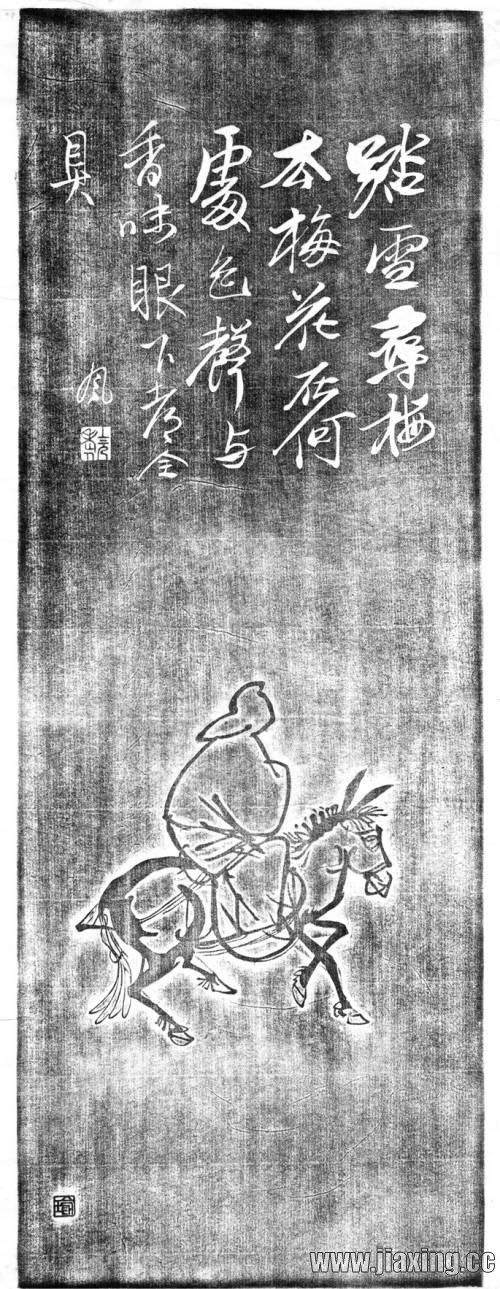 踏雪尋梅
本梅花在何
處色聲与
香味眼下全
具
www.jiaxing.cc